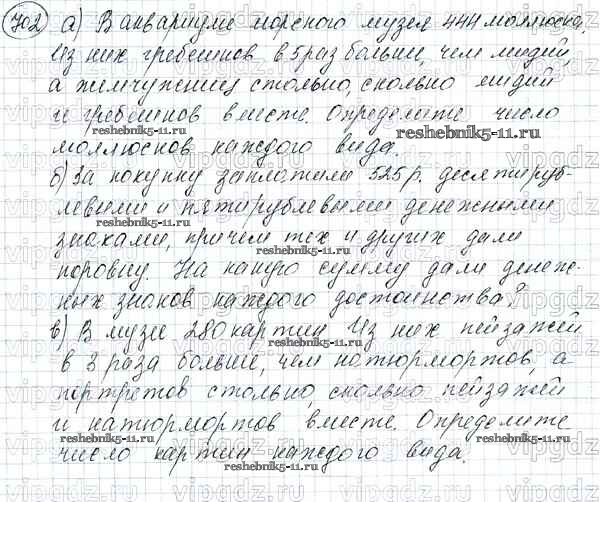 702 а) В аквариуме морского музея 444 моллюска.
Из них гребешков в 5 раз больше, чем мидий,
а жемчужениц столько, сколько мидий
и гребешков вместе. Определите число
моллюсков каждого вида.
б) За покупку заплатили 525 р. десятируб-
левыми и пятирублевыми денежными
знаками, причем тех и других дали
поровну. На какую сумму дали денеж-
ных знаков каждого достоинства?
в) В музее 280 картин Из них пейзажей
в 3 раза больше, чем натюрмортов, а
портретов столько, сколько пейзажей
и натюрмортов вместе. Определите
число картин каждого вида.
reshebnik5-11.ru
reshebnik5-11.ru
reshebnik5-11.ru
reshebnik5-11.ru
reshebnik5-11.ru
reshebnik5-11.ru
vipgdz.ru